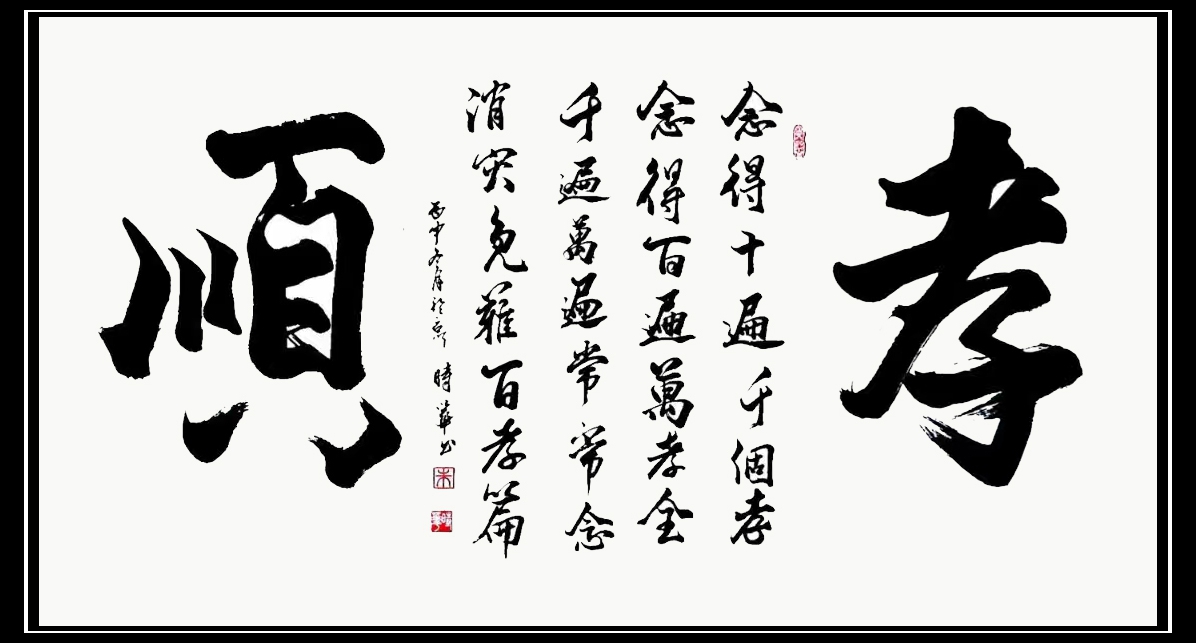 孝
念得十遍千個孝
念得百遍萬孝全
千遍萬遍常常念
消灾免難百孝篇
丙申冬月於京 時華书
順
朱